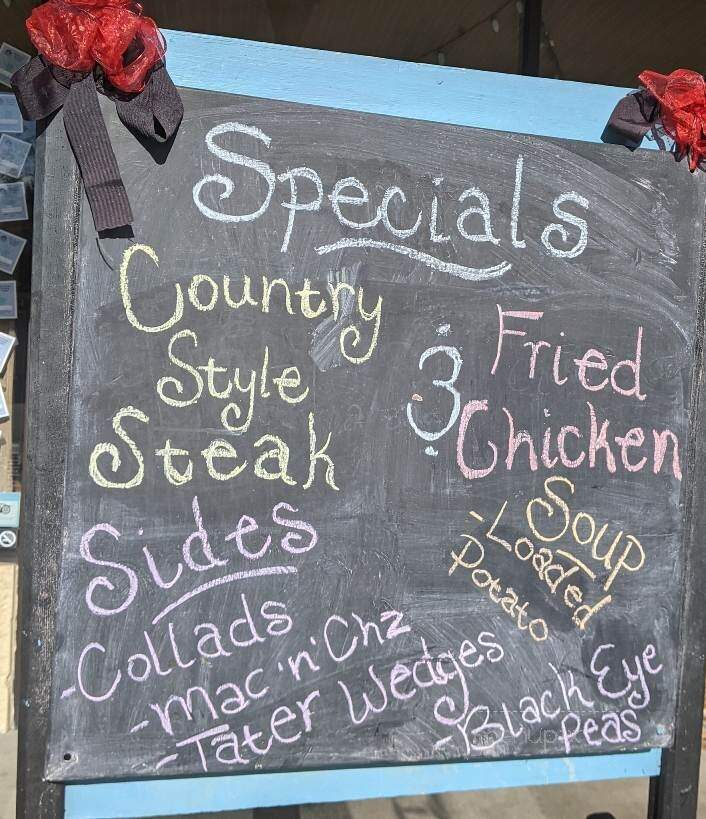 Specials
Country
Style
Steak
&
Fried
Chicken
Soup
-Loaded
Potato
Sides
-Collads
-Mac 'n' Chz
-Tater Wedges
-Black Eye
Peas